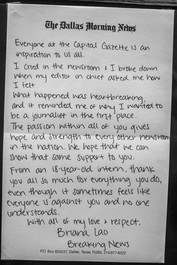 The Dallas Morning News
Everyone at the Capital Gazette is an
inspiration to us all.
I cried in the newsroom & I broke down
when my editor in chief asked me how
I felt.
What happened was heartbreaking,
and it reminded me of why I wanted to
be a journalist in the first place.
The passion within all of you gives
hope and strength to every other newsroom
in the nation. We hope that we can
show that same support to you.
From an 18-year-old intern, thank
you all so much for everything you do,
even though it sometimes feels like
everyone is against you and no one
understands.
With all of my love & respect,
Briana Lao
Breaking News